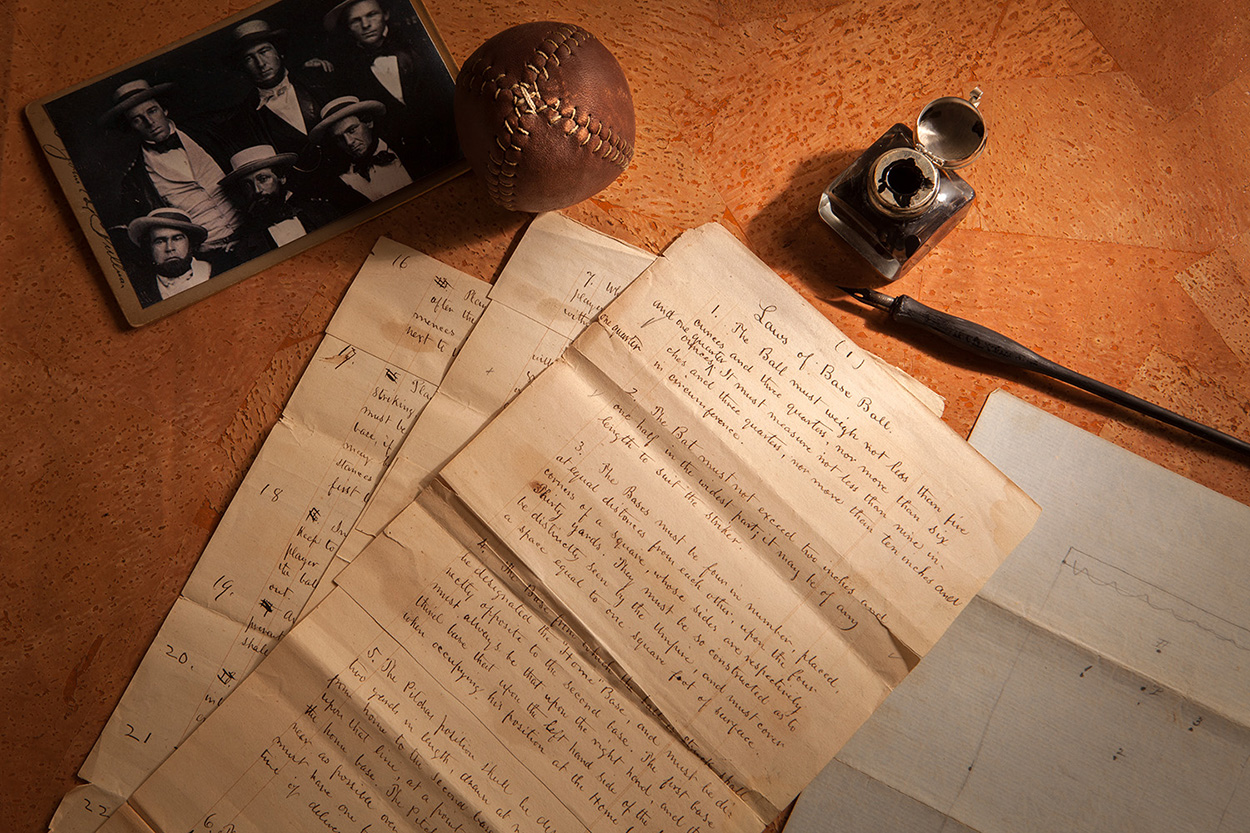 (1)
Laws of Base Ball.
1. The Ball must weigh not less than five
and one quarter
ounces and three quarters, nor more than six
ounces, It must measure not less than nine in-
ches and three quarters, nor more than ten inches and
one quarter
in circumference.
2. The Bat must not exceed two inches and
one half, in the widest part; it may be of any
length to suit the striker
3. The Bases must be four in number, placed
at equal distances from each other, upon the four
corners of a square, whose sides are respectively
Thirty yards. They must be so constructed as to
be distinctly seen by the Umpire, and must cover
a space equal to one square foot of surface.
4. The Base from which the
be designated the Home Base, and must be di-
rectly opposite to the second base. The first base
must always be that upon the right hand, and the
third base that upon the left hand side of the
when occupying his position at the Home
5. The Pitchers position shall be
two yards in length, drawn at
from home to the second
upon that line, at a point
the home base. The Pitch
near as possible
must have one
time of deliver
6.
7. We
player
with
will
16
after the
menced
next to
17.
Striking
must be
base, if
many
stances
first
18
kept to
player
the ball
out.
19.
20.
21
22